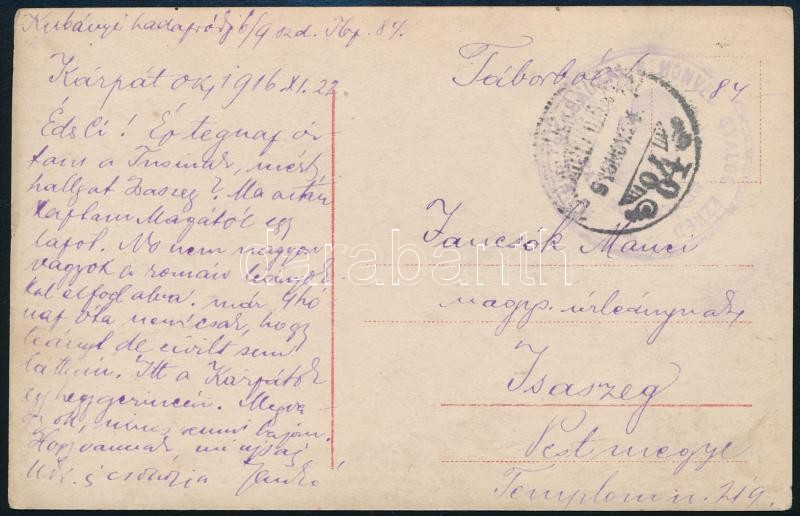 Kubányi hadapródj. 6/9 szd. Kp. 84.
Kárpátok, 1916. XI. 22
ÉdsCi! Ép tegnap ír-
tam a Tusinak, miért
hallgat Isaszeg? Ma aztán
kaptam Magától egy
lapot. No nem nagyon
vagyok a román leányok-
kal elfoglalva. már 4 hó
nap óta nemcsak, hogy
leányt de civilt sem
láttam. Itt a Kárpátok
egy hegygerincén. Megva-
gyok, nincs semmi bajom.
Hogy vannak, mi ujság
Üdv. s csókolja Jenkő
Táborból
84
HONVÉD GYALOG EZRED
Jancsok Manci
nagys. úrleánynak
Isaszeg
Pest megye
Templom u. 219.
darabanth